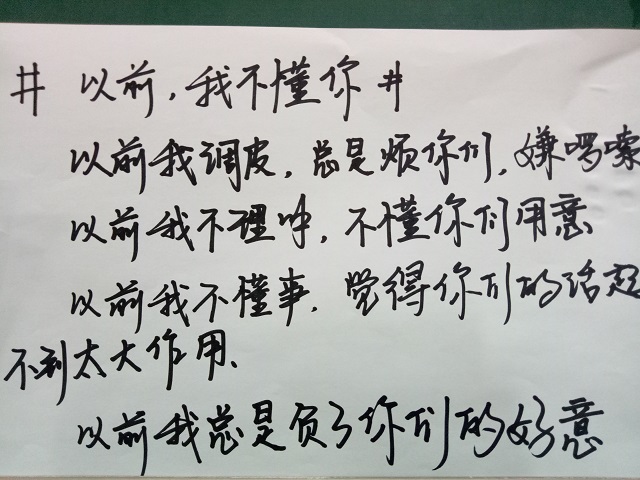 #以前，我不懂你#
以前我调皮，总是烦你们，嫌啰嗦
以前我不理睬，不懂你们用意
以前我不懂事，觉得你们的话起
不到太大作用、
以前我总是负了你们的好意